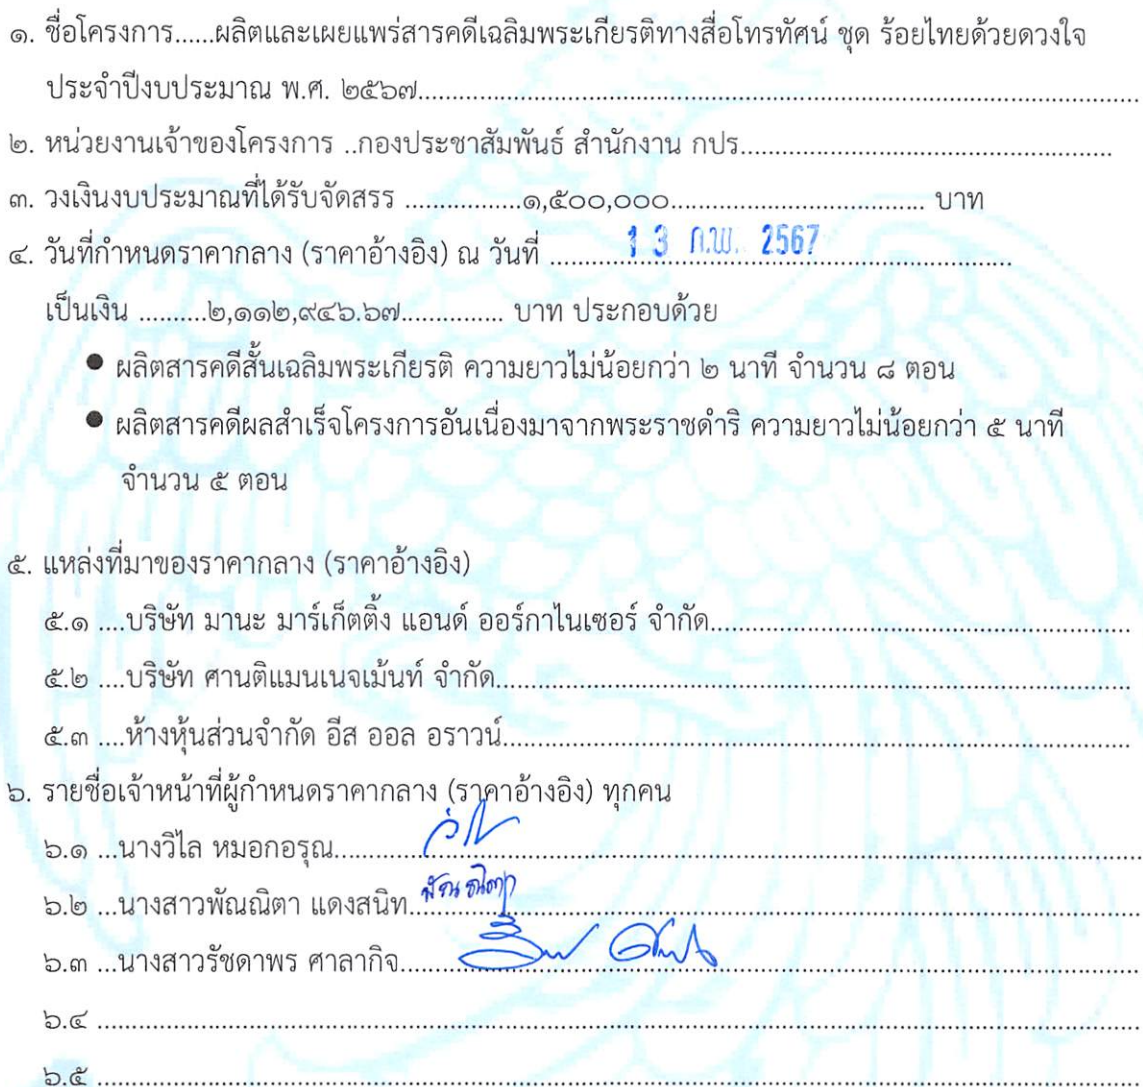 ๑. ชื่อโครงการ......ผลิตและเผยแพร่สารคดีเฉลิมพระเกียรติทางสื่อโทรทัศน์ ชุด ร้อยไทยด้วยดวงใจ
ประจำปีงบประมาณ พ.ศ. ๒๕๖๗...............................................................
๒. หน่วยงานเจ้าของโครงการ ..กองประชาสัมพันธ์ สำนักงาน กปร.....................................................
๓. วงเงินงบประมาณที่ได้รับจัดสรร .................๑,๕๐๐,๐๐๐..................................... บาท
๔. วันที่กำหนดราคากลาง (ราคาอ้างอิง) ณ วันที่ ...........13 ก.พ. 2567............................
เป็นเงิน ..........๒,๑๑๒,๙๔๖.๖๗............... บาท ประกอบด้วย
● ผลิตสารคดีสั้นเฉลิมพระเกียรติ ความยาวไม่น้อยกว่า ๒ นาที จำนวน ๘ ตอน
● ผลิตสารคดีผลสำเร็จโครงการอันเนื่องมาจากพระราชดำริ ความยาวไม่น้อยกว่า ๕ นาที
จำนวน ๕ ตอน
๕. แหล่งที่มาของราคากลาง (ราคาอ้างอิง)
๕.๑ ....บริษัท มานะ มาร์เก็ตติ้ง แอนด์ ออร์กาไนเซอร์ จำกัด.............................................................
๕.๒ ....บริษัท ศานติแมนเนจเม้นท์ จำกัด...............................................................
๕.๓ ....ห้างหุ้นส่วนจำกัด อีส ออล อราวน์...............................................................
๖. รายชื่อเจ้าหน้าที่ผู้กำหนดราคากลาง (ราคาอ้างอิง) ทุกคน
๖.๑ ...นางวิไล หมอกอรุณ...............................................................
๖.๒ ...นางสาวพัณณิตา แดงสนิท...............................................................
๖.๓ ...นางสาวรัชดาพร ศาลากิจ...............................................................
๖.๔ ...............................................................
๖.๕ ...............................................................